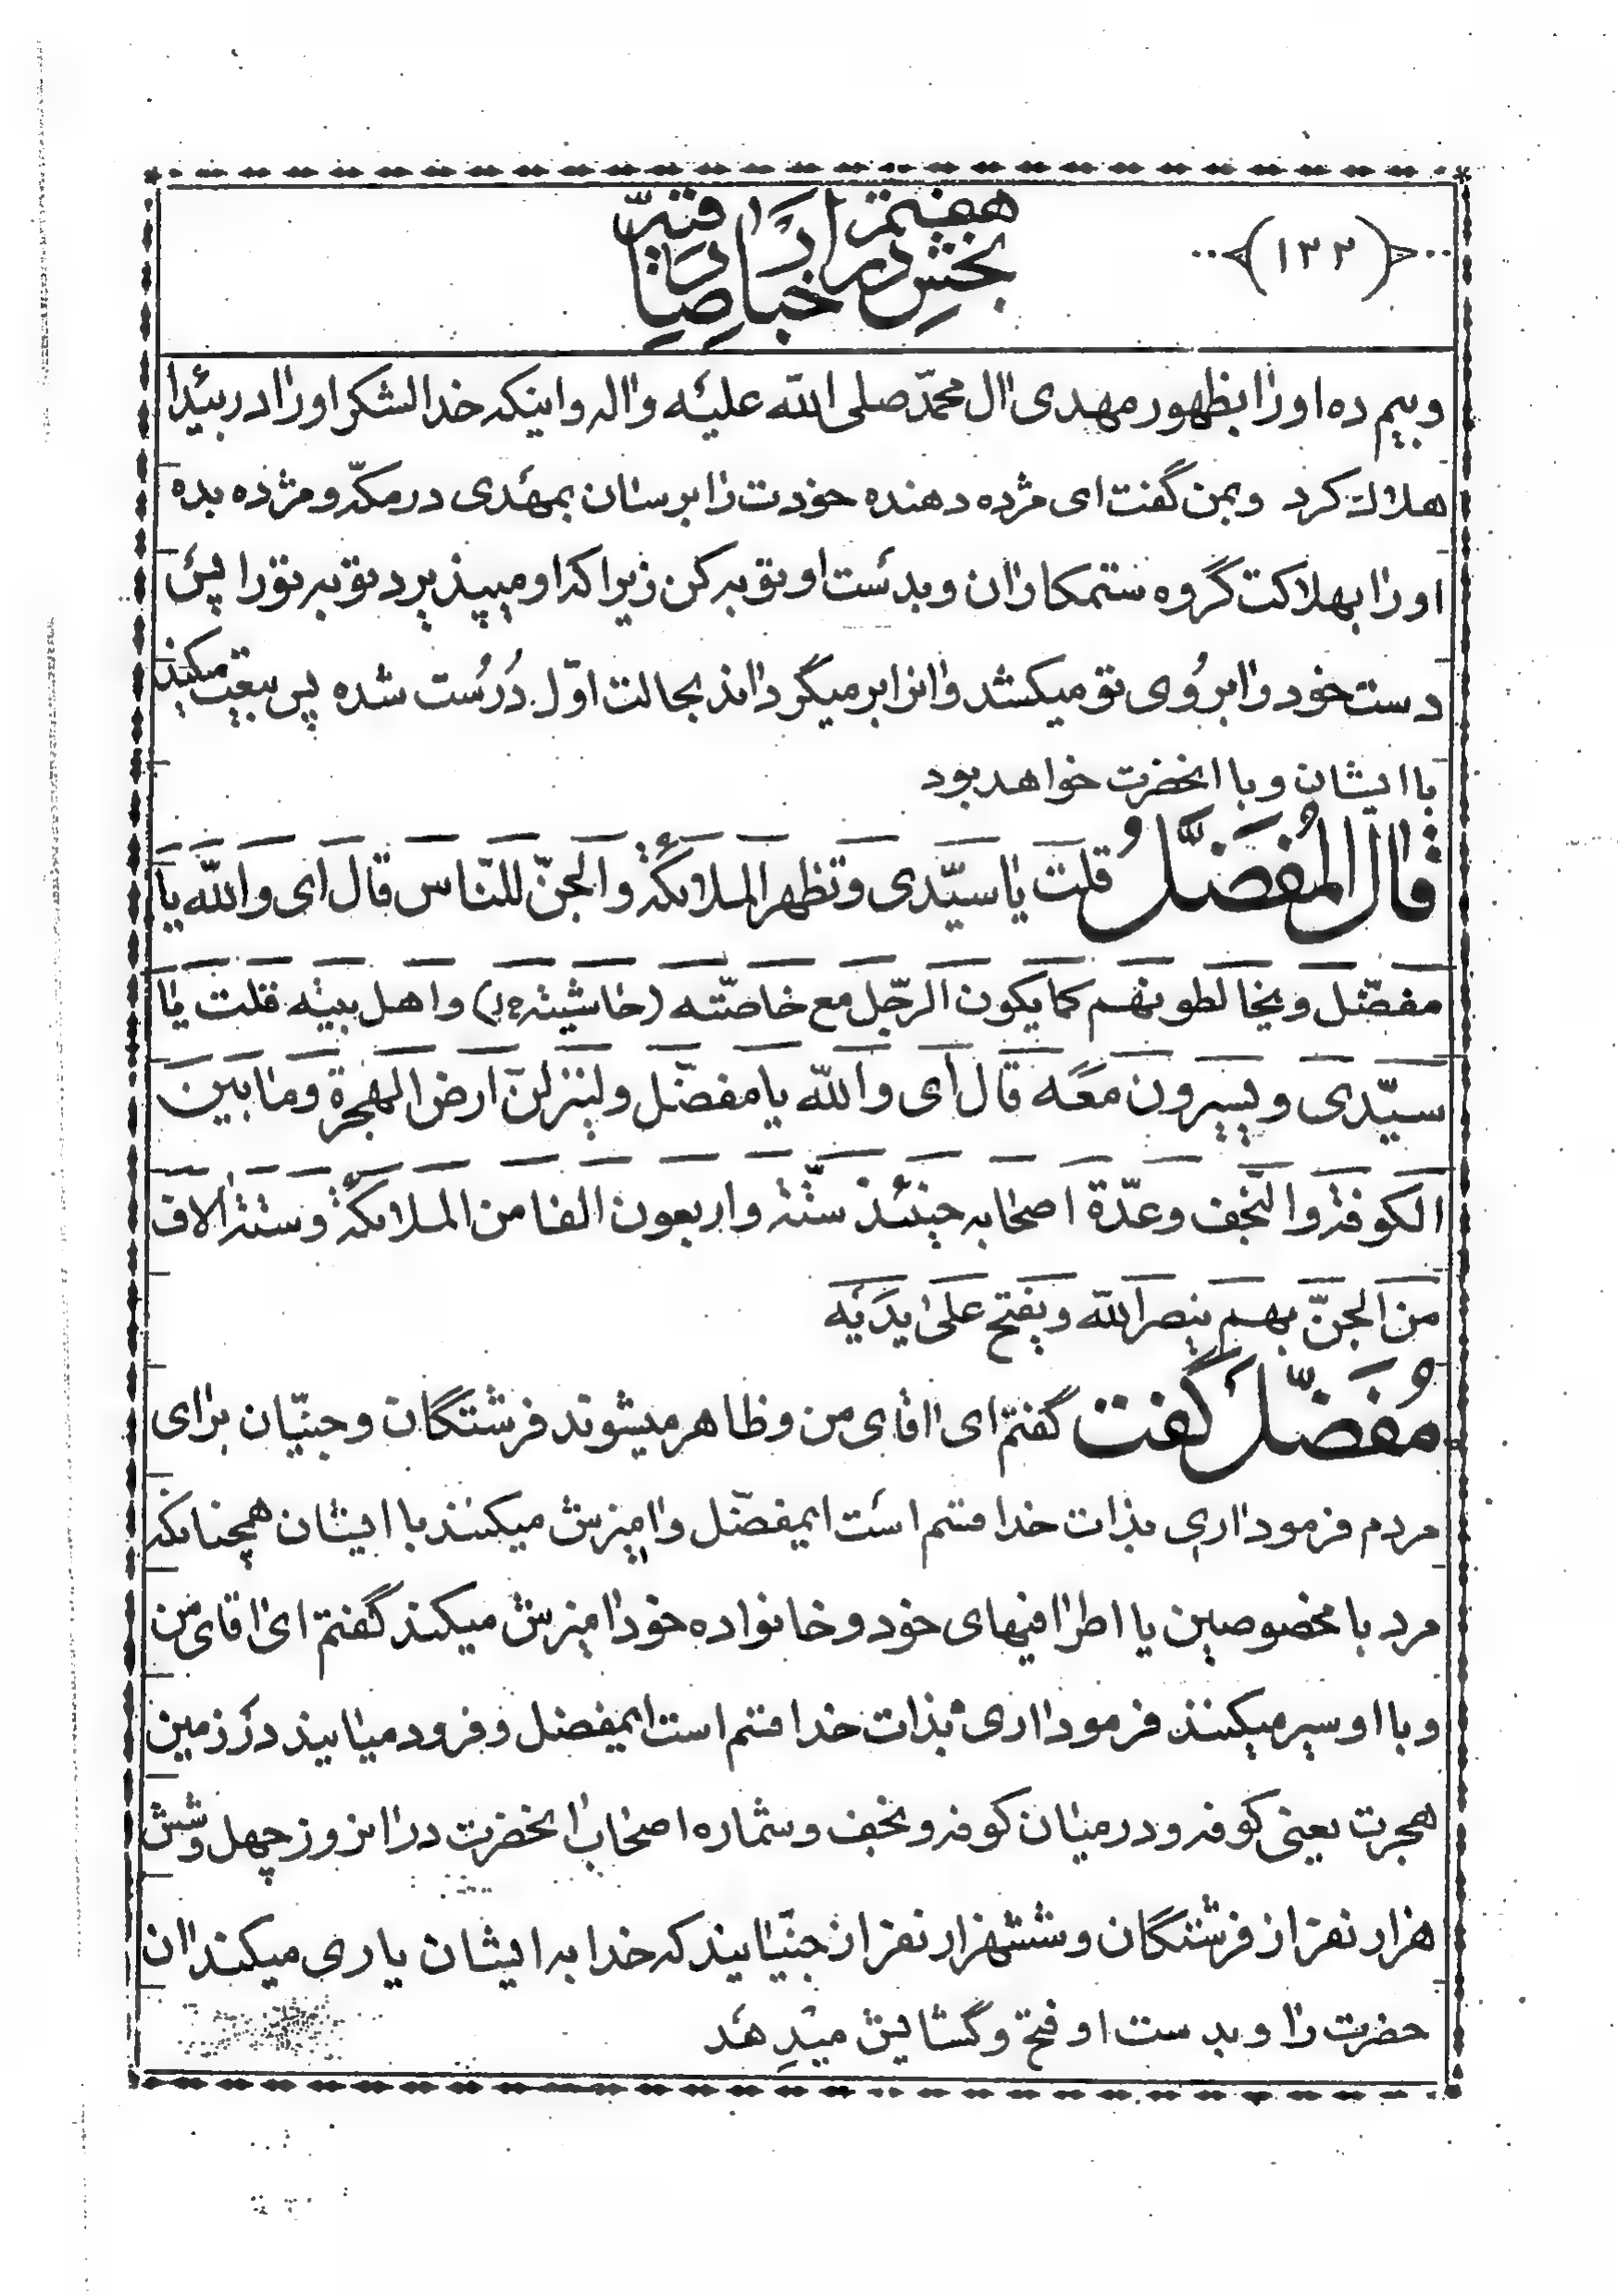 (۱۳۲)
بخش هفتم در اخبار صادقیّه
و بیم ده او را بظهور مهدی ال محمّد صلی اللّه علیه و اله و اینکه خدا لشکر او را در بیدا
هلاک کرد و بمن گفت ای مژده دهنده خودت را برسان بمهدی در مکّه و مژده بده
او را بهلاکت گروه ستمکاران و بدست او توبه کن زیرا که او میپذیرد توبه تو را پس
دست خود را بروی تو میکشد و انرا بر میگرداند بحالت اوّل دُرُست شده پس بیعت میکند
با ایشان و با انحضرت خواهد بود
قال المُفَضَّلُ قلت یا سیّدی و تظهر الملائکة و الجنّ للنّاس قال ای و اللّه یا
مفضّل و یخالطونهم کما یکون الرّجل مع خاصّته (حاشیته) و اهل بیته قلت یا
سیّدی و یسیرون معه قال ای و اللّه یا مفضّل و لینزلنّ ارض الهجرة و ما بین
الکوفة و النّجف و عدّة اصحابه حینئذ ستّة و اربعون الفا من الملائکة و ستة الاف
من الجنّ بهم ینصر اللّه و یفتح علی یدیه
مُفَضَّل گفت گفتم ای اقای من و ظاهر میشوند فرشتگان و جنیّان برای
مردم فرمود اری بذات خدا قسم است ایمفضّل و امیزش میکنند با ایشان همچنانکه
مرد با مخصوصین یا اطرافیهای خود و خانواده خود امیزش میکند گفتم ای اقای من
و با او سیر میکنند فرمود اری بذات خدا قسم است ایمفضل و فرود میایند در زمین
هجرت یعنی کوفه و در میان کوفه و نجف و شماره اصحاب انحضرت در انروز چهل و شش
هزار نفر از فرشتگان و ششهزار نفر از جنّیایند که خدا به ایشان یاری میکند ان
حضرت را و بدست او فتح و گشایش میدهد